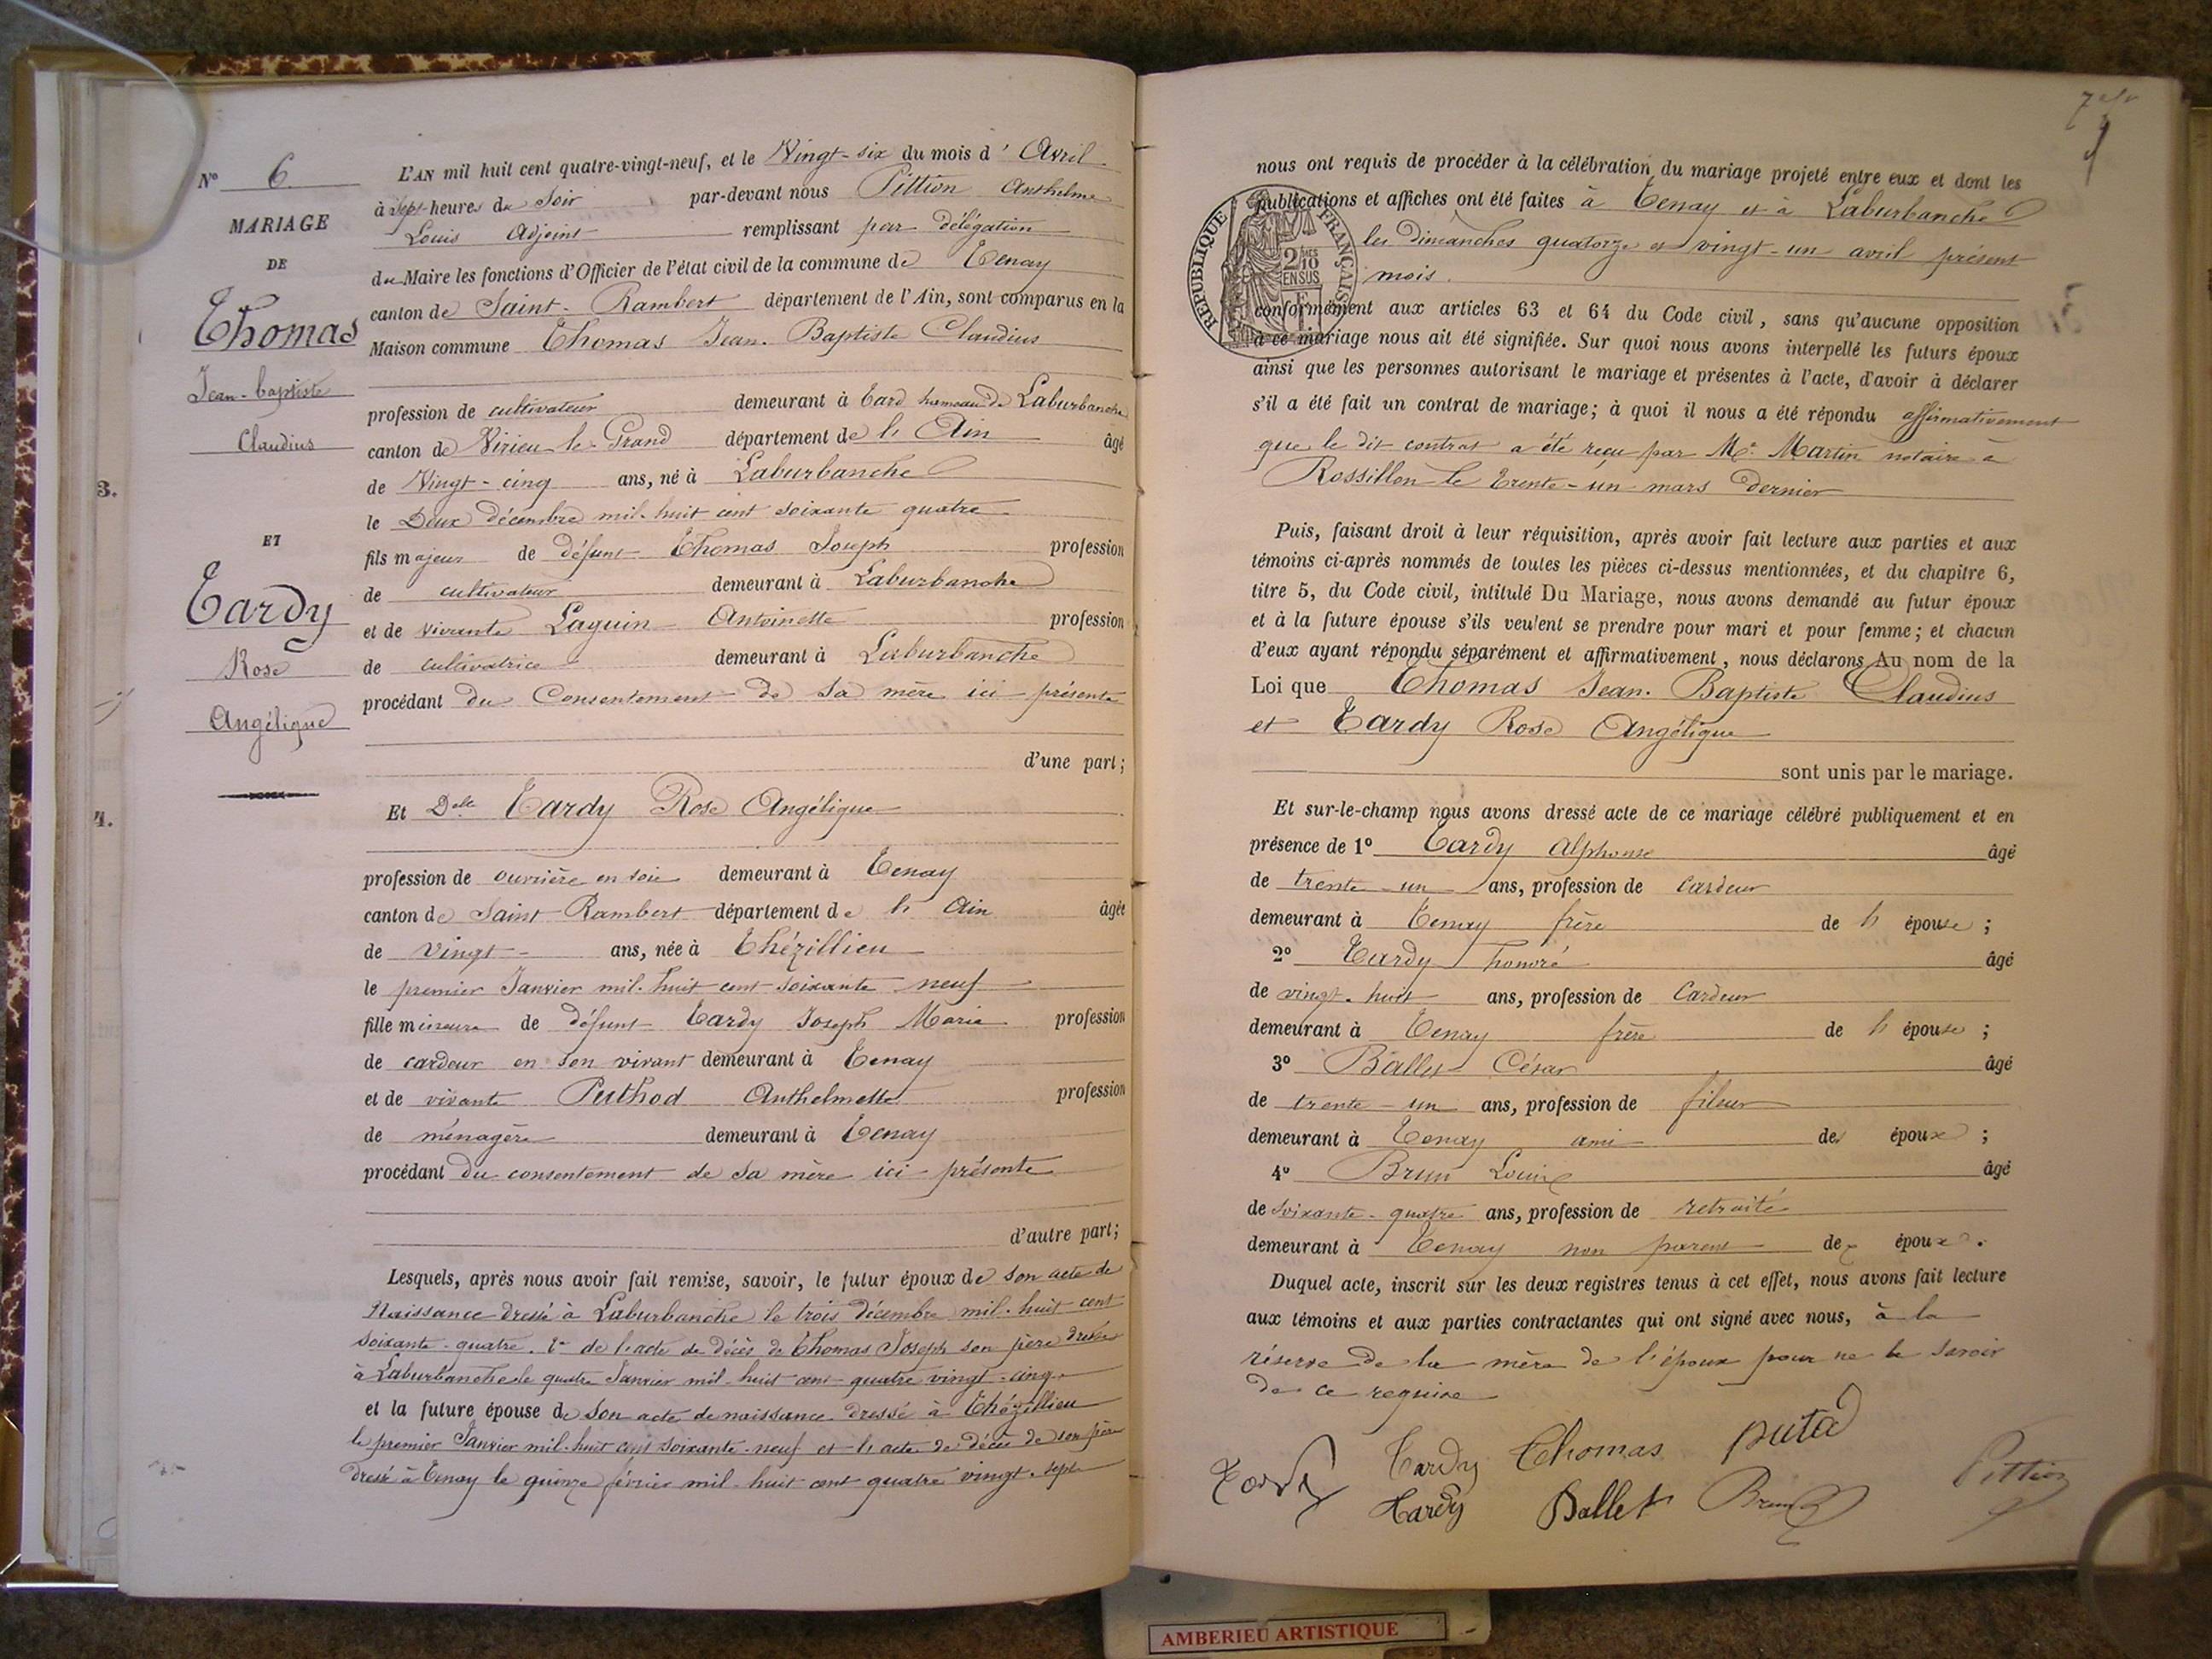 N° 6
MARIAGE
DE
Thomas
Jean-baptiste
Claudius
ET
Tardy
Rose
Angélique
3.
4.
L'AN mil huit cent quatre-vingt-neuf, et le Vingt-six du mois d'Avril
à Sept heures du Soir par-devant nous Pittion Anthelme
Louis Adjoint remplissant par délégation
du Maire les fonctions d'Officier de l'état civil de la commune de Tenay
canton de Saint-Rambert département de l'Ain, sont comparus en la
Maison commune Thomas Jean-Baptiste Claudius
profession de cultivateur demeurant à Tard hameau de Laburbanche
canton de Virieu-le-Grand département de l'Ain âgé
de Vingt-cinq ans, né à Laburbanche
le Deux décembre mil-huit cent soixante quatre
fils majeur de défunt Thomas Joseph profession
de cultivateur demeurant à Laburbanche
et de vivante Laguin Antoinette profession
de cultivatrice demeurant à Laburbanche
procédant du Consentement de sa mère ici présente
d'une part;
Et Delle Tardy Rose Angélique
profession de ouvrière en soie demeurant à Tenay
canton de Saint-Rambert département de l'Ain âgée
de vingt ans, née à Thézillieu
le premier Janvier mil-huit cent soixante neuf
fille mineure de défunt Tardy Joseph Marie profession
de cardeur en son vivant demeurant à Tenay
et de vivante Puthod Anthelmette profession
de ménagère demeurant à Tenay
procédant du consentement de sa mère ici présente
d'autre part;
Lesquels, après nous avoir fait remise, savoir, le futur époux de son acte de
Naissance dressé à Laburbanche le trois décembre mil-huit cent
soixante-quatre. de l'acte de décès de Thomas Joseph son père dressé
à Laburbanche le quatre Janvier mil-huit cent quatre vingt-cinq
et la future épouse de son acte de naissance dressé à Thézillieu
le premier Janvier mil-huit cent soixante-neuf et l'acte de décès de son père
dressé à Tenay le quinze février mil-huit cent quatre vingt-sept
7
nous ont requis de procéder à la célébration du mariage projeté entre eux et dont les
publications et affiches ont été faites à Tenay et à Laburbanche
les dimanches quatorze et vingt-un avril présent
mois.
RÉPUBLIQUE FRANÇAISE
2/10 EN SUS
conformément aux articles 63 et 64 du Code civil, sans qu'aucune opposition
à ce mariage nous ait été signifiée. Sur quoi nous avons interpellé les futurs époux
ainsi que les personnes autorisant le mariage et présentes à l'acte, d'avoir à déclarer
s'il a été fait un contrat de mariage; à quoi il nous a été répondu affirmativement
que le dit contrat a été reçu par Me Martin notaire à
Rossillon le trente-un mars dernier
Puis, faisant droit à leur réquisition, après avoir fait lecture aux parties et aux
témoins ci-après nommés de toutes les pièces ci-dessus mentionnées, et du chapitre 6,
titre 5, du Code civil, intitulé Du Mariage, nous avons demandé au futur époux
et à la future épouse s'ils veulent se prendre pour mari et pour femme; et chacun
d'eux ayant répondu séparément et affirmativement, nous déclarons Au nom de la
Loi que Thomas Jean-Baptiste Claudius
et Tardy Rose Angélique
sont unis par le mariage.
Et sur-le-champ nous avons dressé acte de ce mariage célébré publiquement et en
présence de 1° Tardy Alphonse âgé
de trente-un ans, profession de cardeur
demeurant à Tenay frère de l'épouse;
2° Tardy honoré âgé
de vingt-huit ans, profession de Cardeur
demeurant à Tenay frère de l'épouse;
3° Ballet César âgé
de trente-un ans, profession de fileur
demeurant à Tenay ami des époux;
4° Brun Louis âgé
de soixante-quatre ans, profession de retraité
demeurant à Tenay non parent des époux.
Duquel acte, inscrit sur les deux registres tenus à cet effet, nous avons fait lecture
aux témoins et aux parties contractantes qui ont signé avec nous, à la
réserve de la mère de l'époux pour ne le savoir
de ce requise
Tardy Thomas putod
Tardy Ballet Brun Pittion
AMBERIEU ARTISTIQUE